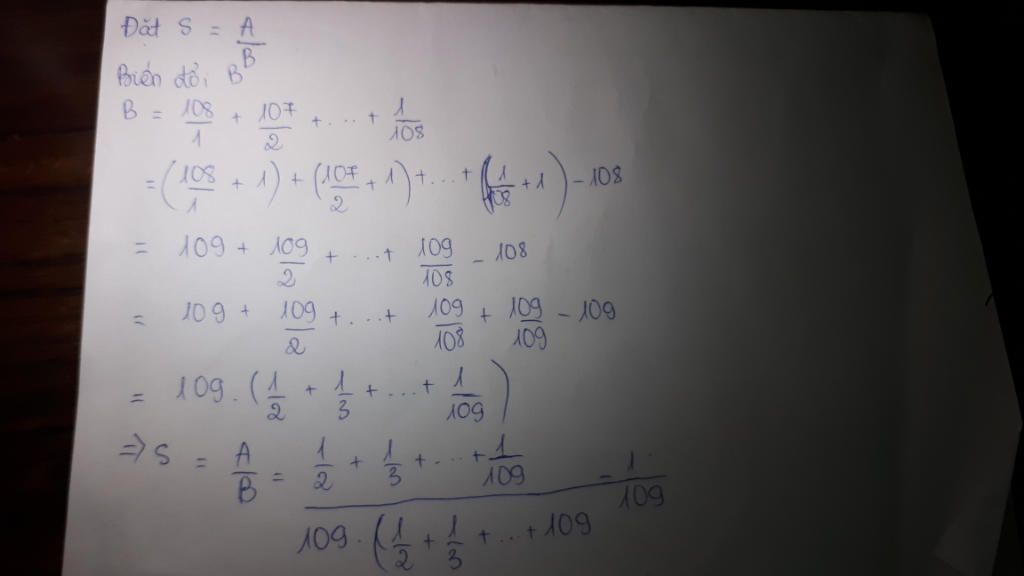 Đặt S = A/B
Biến đổi B
B = 108/1 + 107/2 + ... + 1/108
= (108/1 + 1) + (107/2 + 1) + ... + (1/108 + 1) - 108
= 109 + 109/2 + ... + 109/108 - 108
= 109 + 109/2 + ... + 109/108 + 109/109 - 109
= 109 . (1/2 + 1/3 + ... + 1/109)
=> S = A/B = (1/2 + 1/3 + ... + 1/109) / (109 . (1/2 + 1/3 + ... + 109 = 1/109